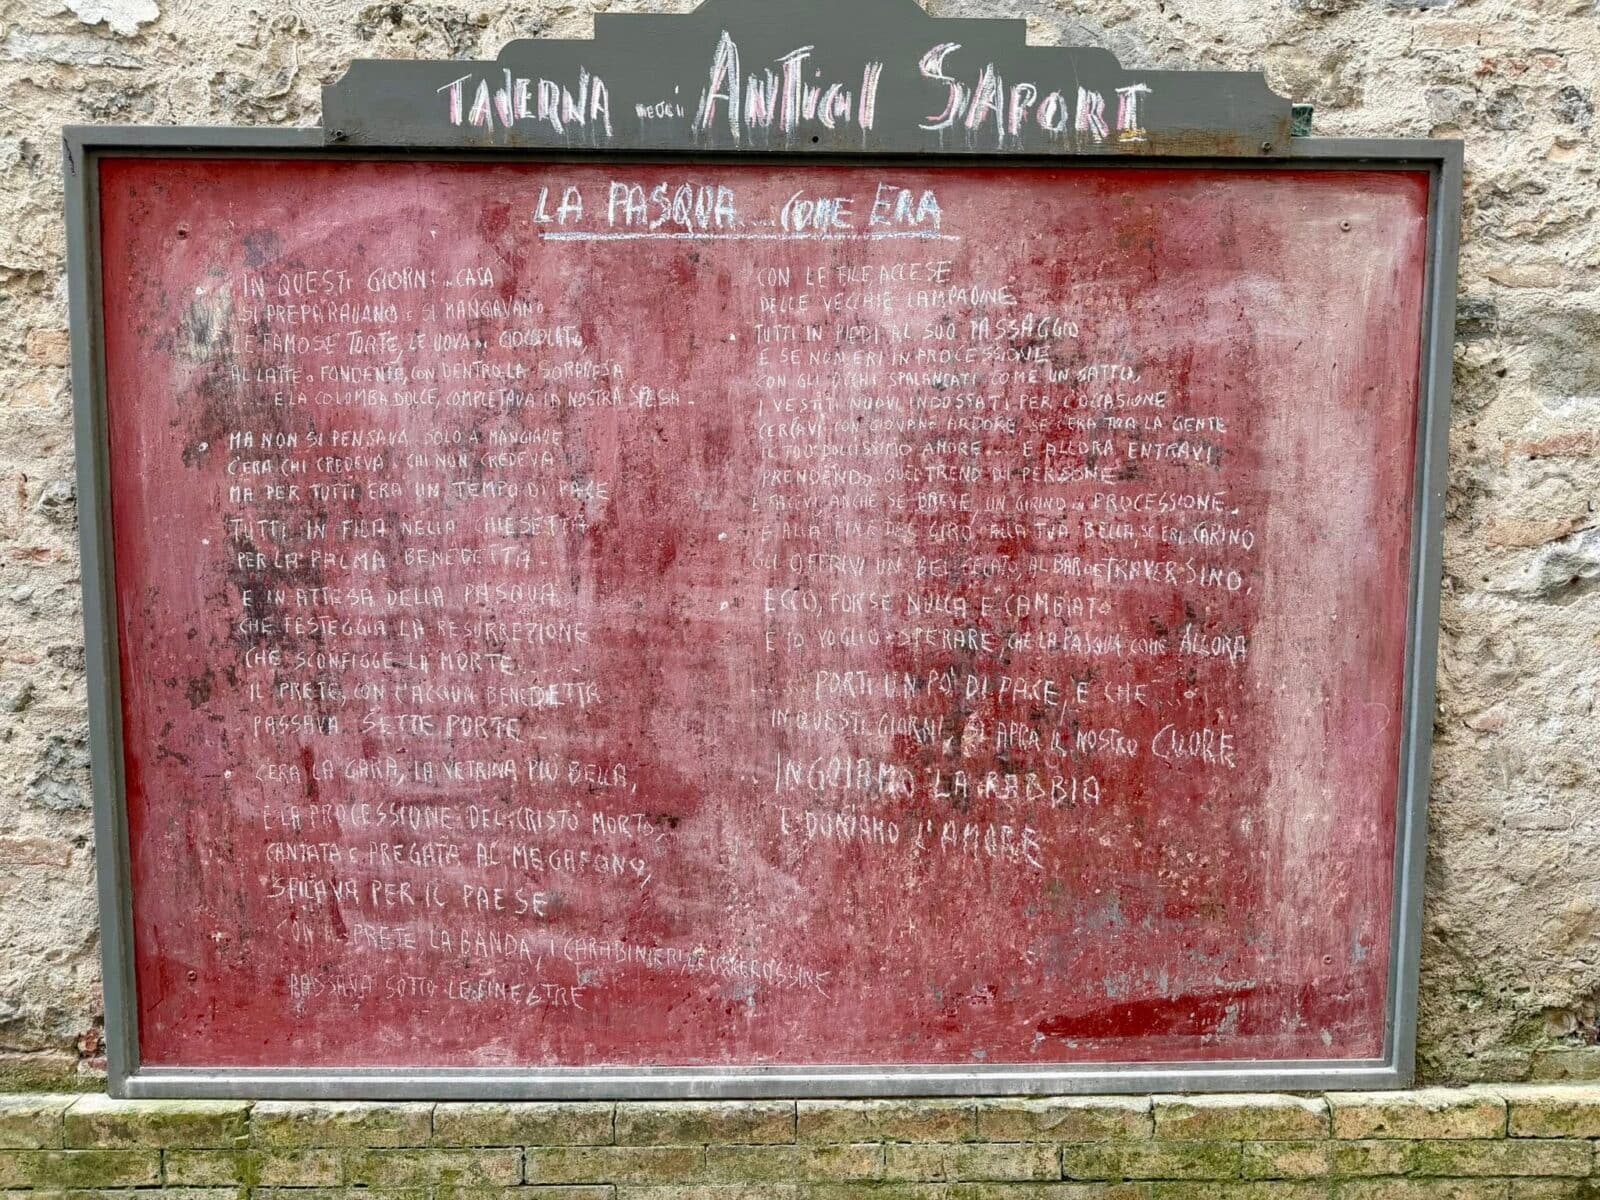 TAVERNA DEGLI ANTICHI SAPORI
LA PASQUA ... COME ERA
IN QUESTI GIORNI IN CASA
SI PREPARAVANO E SI MANGIAVANO
LE FAMOSE TORTE, LE UOVA DI CIOCCOLATO,
AL LATTE O FONDENTE, CON DENTRO LA SORPRESA
... E LA COLOMBA DOLCE, COMPLETAVA LA NOSTRA SPESA.
MA NON SI PENSAVA SOLO A MANGIARE
C'ERA CHI CREDEVA E CHI NON CREDEVA
MA PER TUTTI ERA UN TEMPO DI PACE
TUTTI IN FILA NELLA CHIESETTA
PER LA PALMA BENEDETTA.
E IN ATTESA DELLA PASQUA
CHE FESTEGGIA LA RESURREZIONE
CHE SCONFIGGE LA MORTE
IL PRETE, CON L'ACQUA BENEDETTA
PASSAVA SETTE PORTE.
C'ERA LA GARA, LA VETRINA PIÙ BELLA,
E LA PROCESSIONE DEL CRISTO MORTO
CANTATA E PREGATA AL MEGAFONO,
SFILAVA PER IL PAESE
CON IL PRETE LA BANDA, I CARABINIERI,
PASSAVA SOTTO LE FINESTRE
CON LE FILE ACCESE
DELLE VECCHIE LAMPADINE
TUTTI IN PIEDI AL SUO PASSAGGIO
E SE NON ERI IN PROCESSIONE
CON GLI OCCHI SPALANCATI COME UN GATTO,
I VESTITI NUOVI INDOSSATI PER L'OCCASIONE
CERCAVI CON GIOVANE ARDORE, SE C'ERA TRA LA GENTE
IL TUO DOLCISSIMO AMORE ... E ALLORA ENTRAVI
PRENDENDO QUEL TREND DI PERSONE
E FACEVI, ANCHE SE BREVE, UN GIRINO IN PROCESSIONE.
E ALLA FINE DEL GIRO, ALLA TUA BELLA, SE ERI CARINO
GLI OFFRIVI UN BEL GELATO, AL BAR DE TRAVERSINO,
ECCO, FORSE NULLA È CAMBIATO
E IO VOGLIO SPERARE, CHE LA PASQUA COME ALLORA
.... PORTI UN PO' DI PACE, E CHE ....
IN QUESTI GIORNI, SI APRA IL NOSTRO CUORE
INGOIAMO LA RABBIA
E DONIAMO L'AMORE